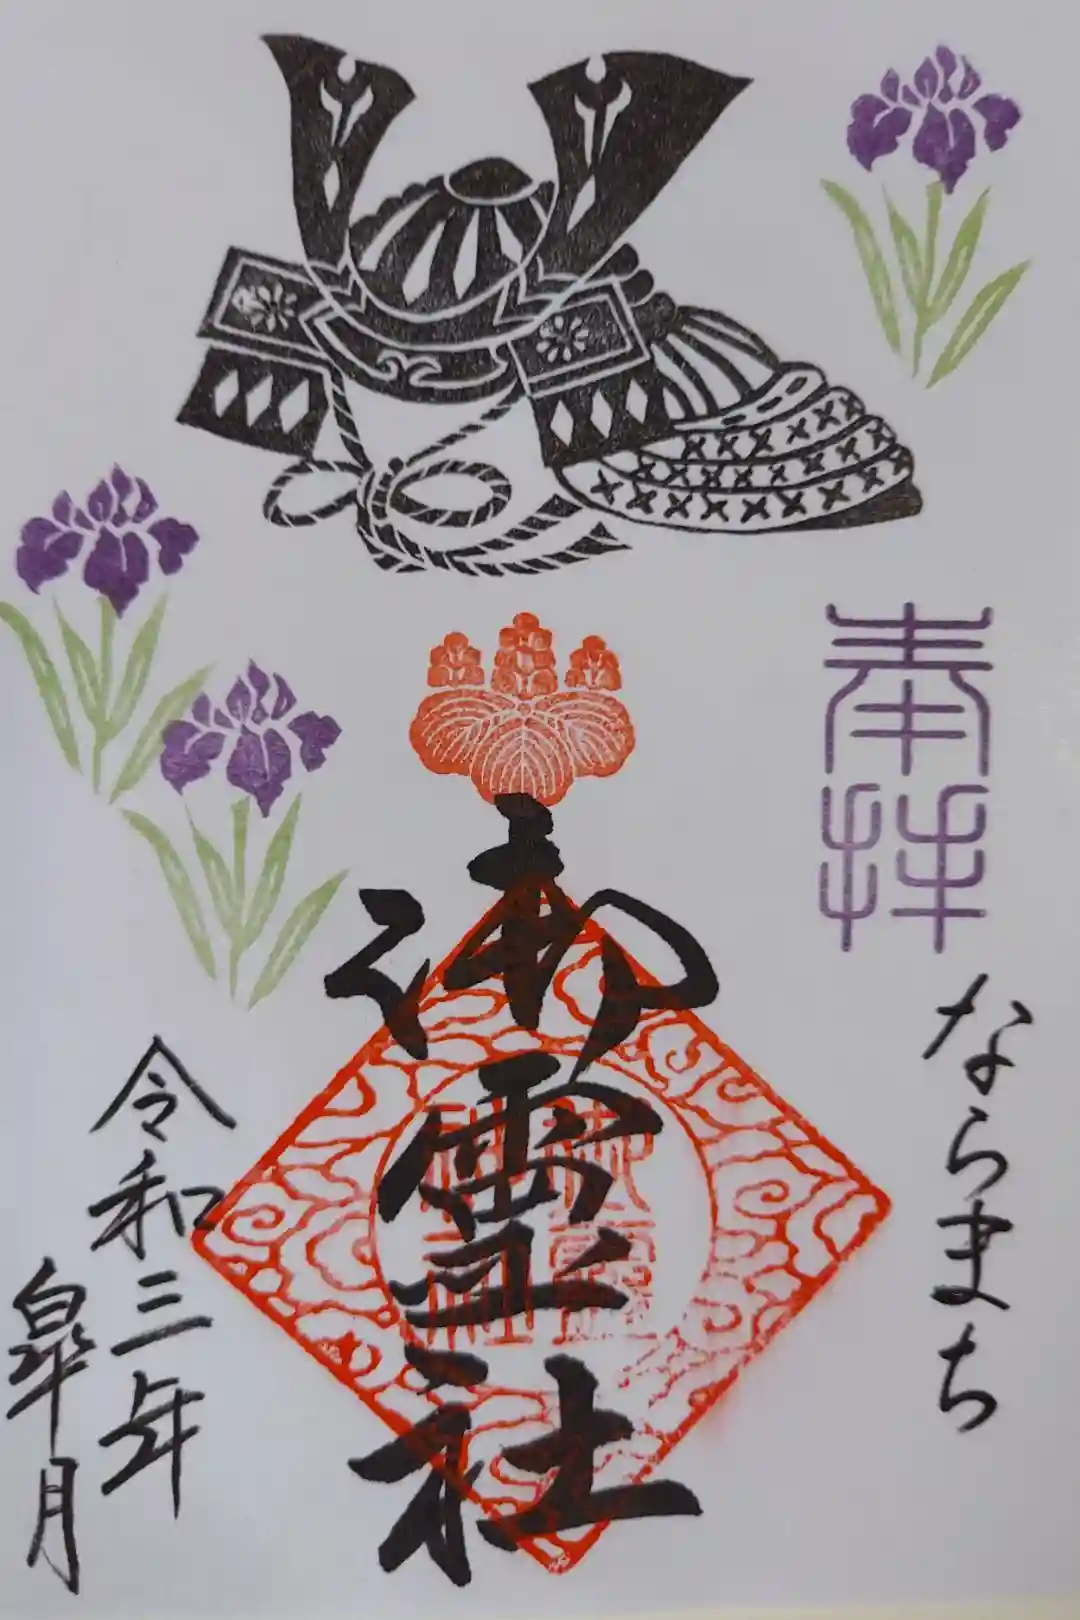 奉拝
ならまち
御霊社
令和三年
皐月